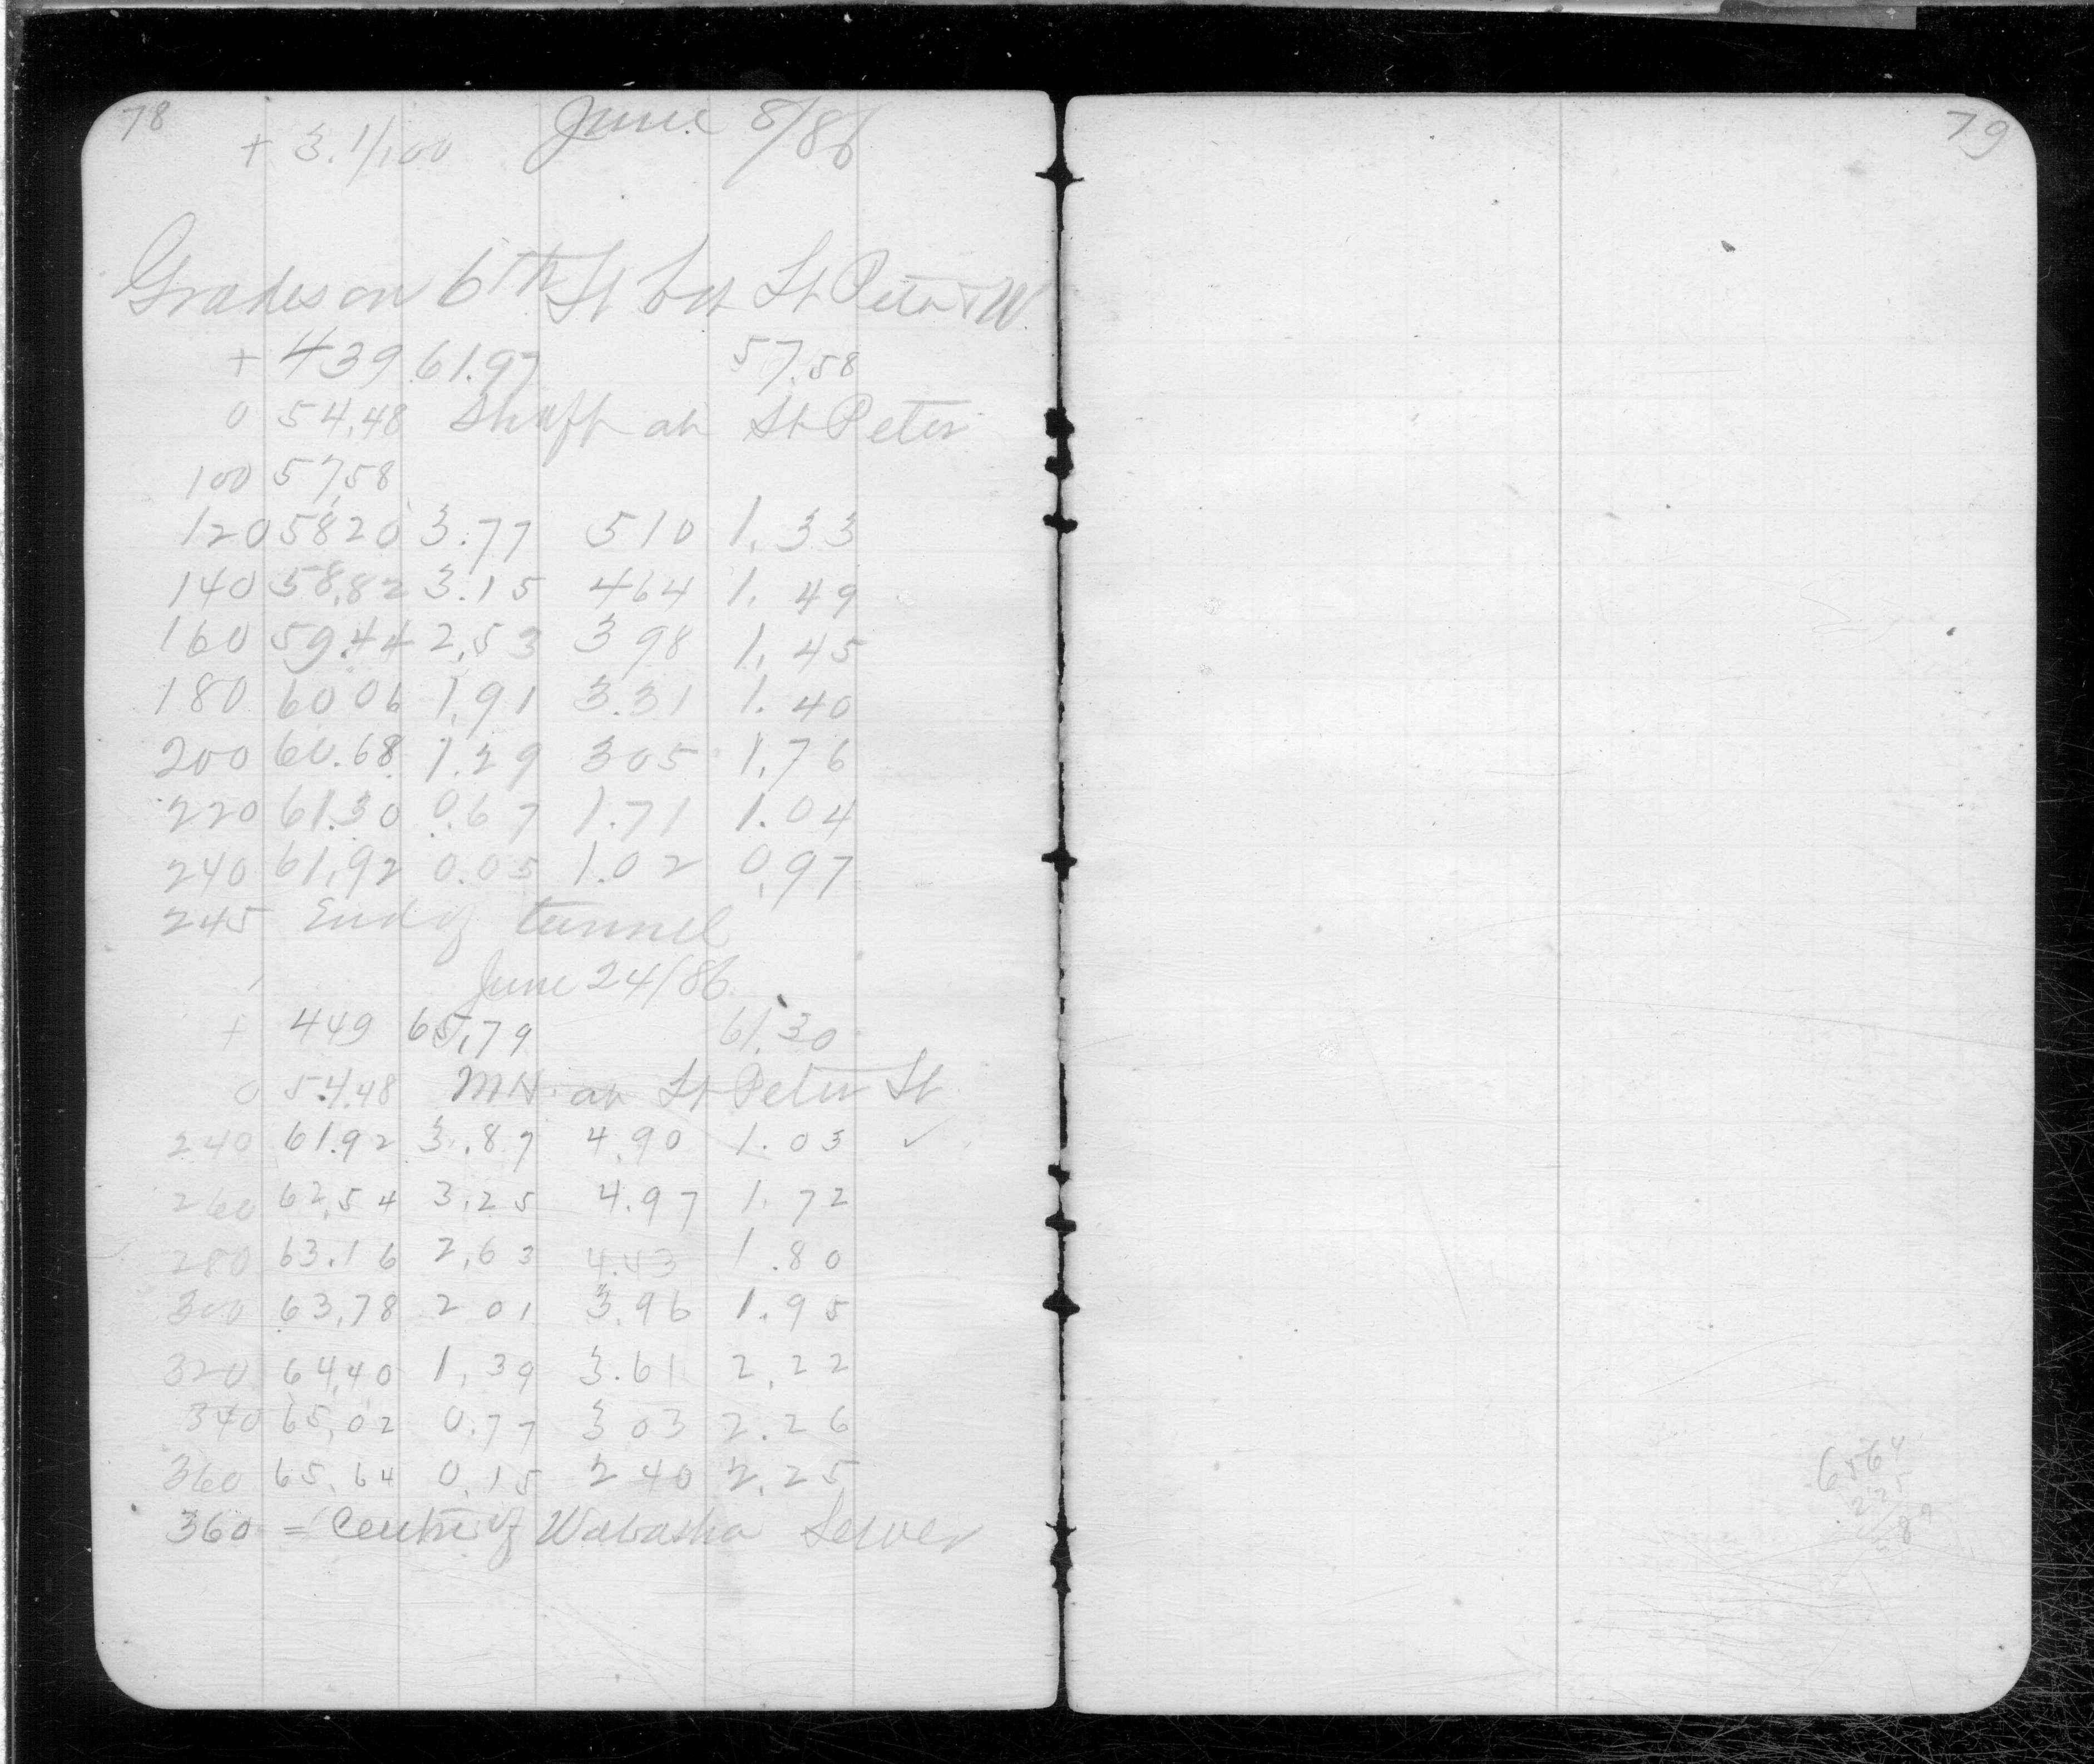 78
+ 3.1/100 June 8/86
Grades on 6th St bet St Peter & W.
+ 439 61.97 57.58
0 54.48 Shaft at St Peter
100 57.58
120 5820 3.77 510 1.33
140 58.82 3.15 464 1.49
160 59.44 2.53 398 1.45
180 6006 1.91 3.31 1.40
200 60.68 1.29 305 1.76
220 61.30 0.67 1.71 1.04
240 61.92 0.05 1.02 0.97
245 End of tunnel
June 24/86
+ 449 65.79 61.30
0 54.48 MH. at St Peter St
240 61.92 3.87 4.90 1.03 ✓
260 62.54 3.25 4.97 1.72
280 63.16 2.63 4.43 1.80
300 63.78 201 3.96 1.95
320 64.40 1.39 3.61 2.22
340 65.02 0.77 303 2.26
360 65.64 0.15 240 2.25
360 = Centre of Wabasha Sewer
79
6564
225